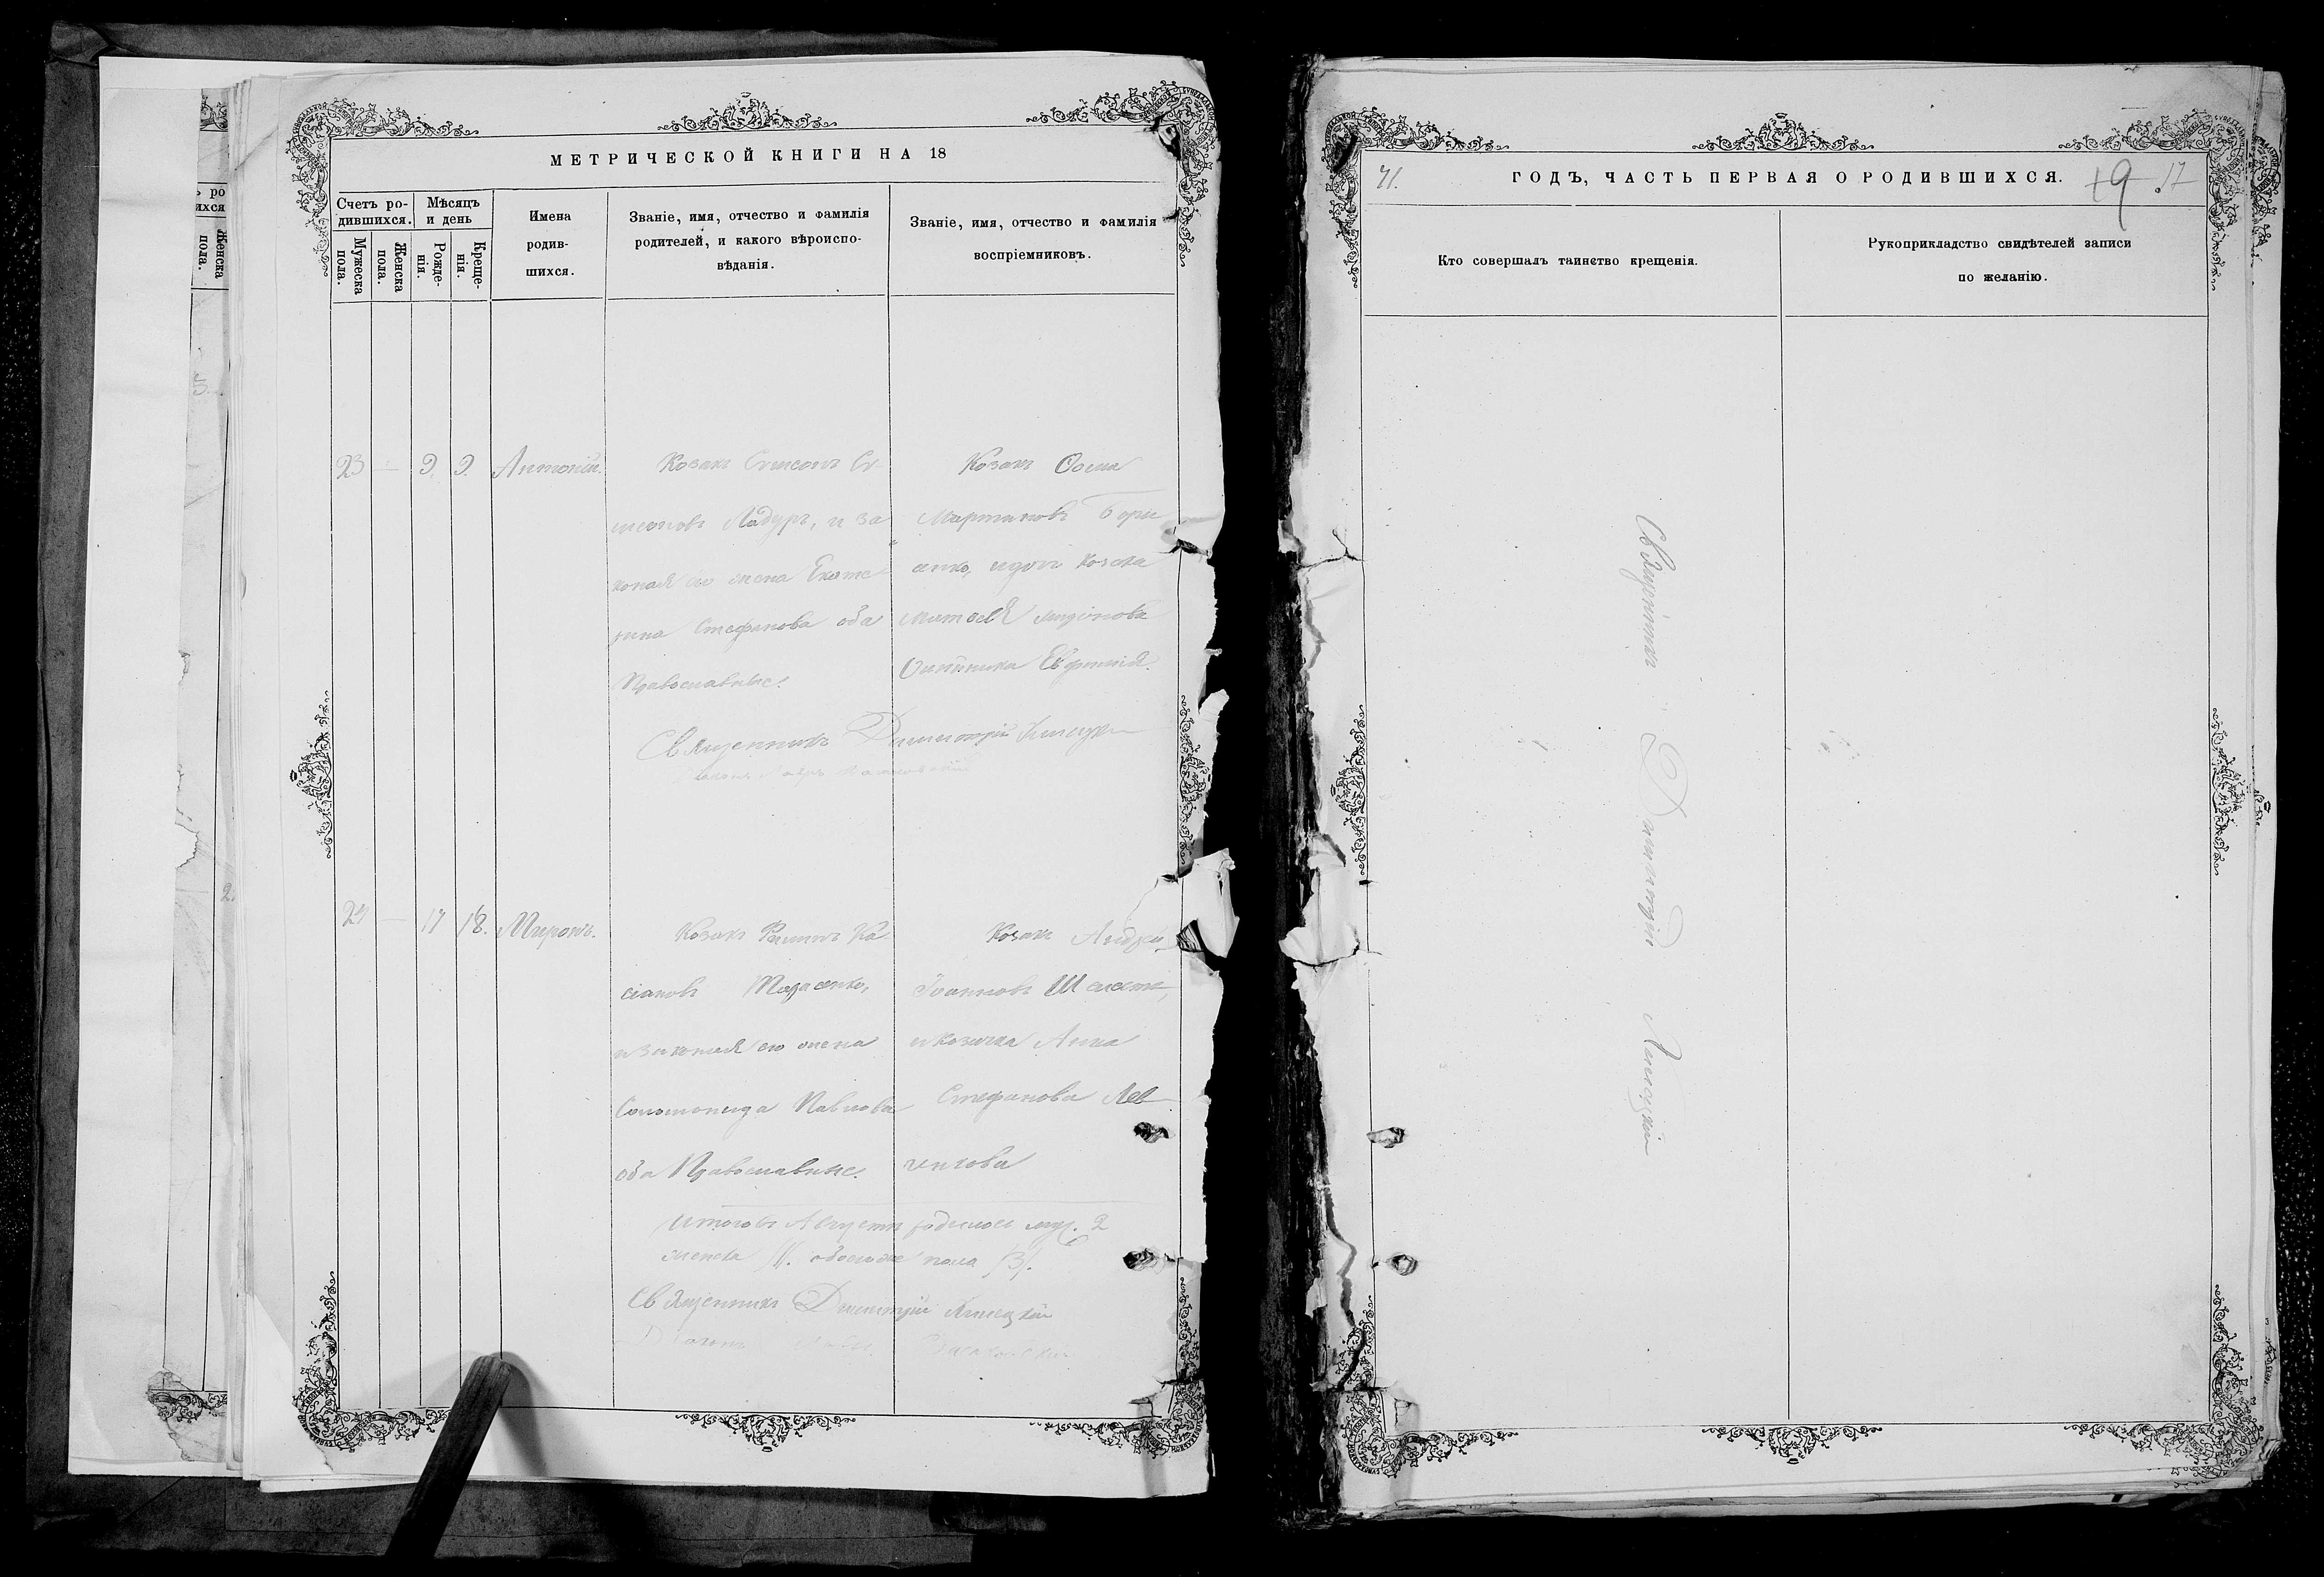 МЕТРИЧЕСКОЙ КНИГИ НА 18
Счетъ ро-
дившихся.
Мѣсяцъ
и день
Мужеска
пола.
Женска
пола.
Рожде-
нія.
Креще-
нія.
Имена
родив-
шихся.
Званіе, имя, отчество и фамилія
родителей, и какого вѣроиспо-
вѣданія.
Званіе, имя, отчество и фамилія
воспріемниковъ.
23 — 9. 9. Антоній.
Козакъ Симеонъ Си
меоновъ Ладуръ, и за
коная его жена Екате
рина Стефанова оба
Православные.
Козакъ Ѳома
Мартиновъ Бори
сенко, и дочь козака
Матвея
Евфимія.
Священникъ Димитрій
24 — 17 18. Миронъ.
Козакъ Филипъ Ка
сіановъ Тарасенко,
и законая его жена
Соломонида Павлова
оба Православные.
Козакъ Андрей
Іоанновъ
и козачка Анна
Стефанова Лев
ченкова
Итого въ Августѣ родилось муж. 2
женска 1. обоего пола 3.
Священникъ Димитрій
41.
ГОДЪ, ЧАСТЬ ПЕРВАЯ О РОДИВШИХСЯ.
19
17
Кто совершалъ таинство крещенія.
Рукоприкладство свидѣтелей записи
по желанію.
Священникъ Димитрій
ро
ихся
Женска
пола.
пола.
5
2.